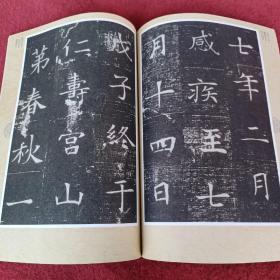 七年二月
感疾至七
月十四日
戊子終于
仁壽宮山
第春秋一